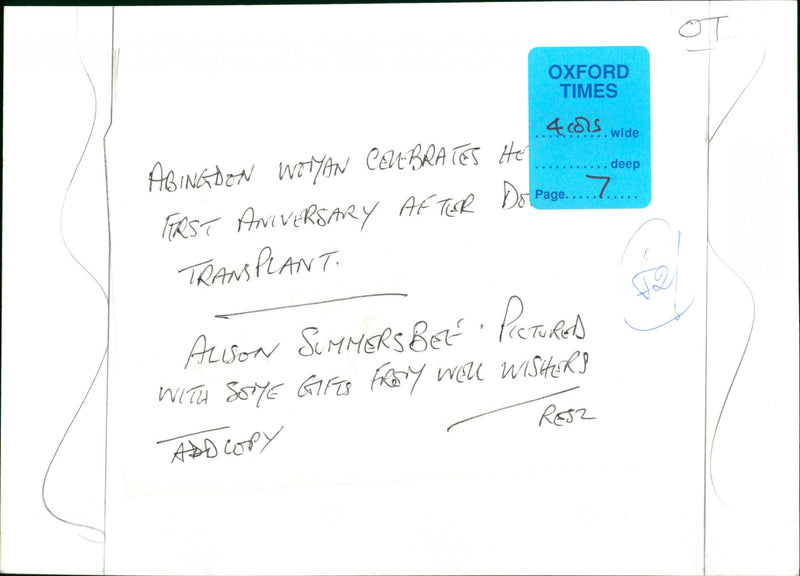 OT
OXFORD
TIMES
4 cols wide
deep
Page 7
ABINGDON WOMAN CELEBRATES HE
FIRST ANIVERSARY AFTER DO
TRANSPLANT.
ALISON SUMMERSBEE. PICTURED
WITH SOME GIFTS FROM WELL WISHERS
ADD COPY